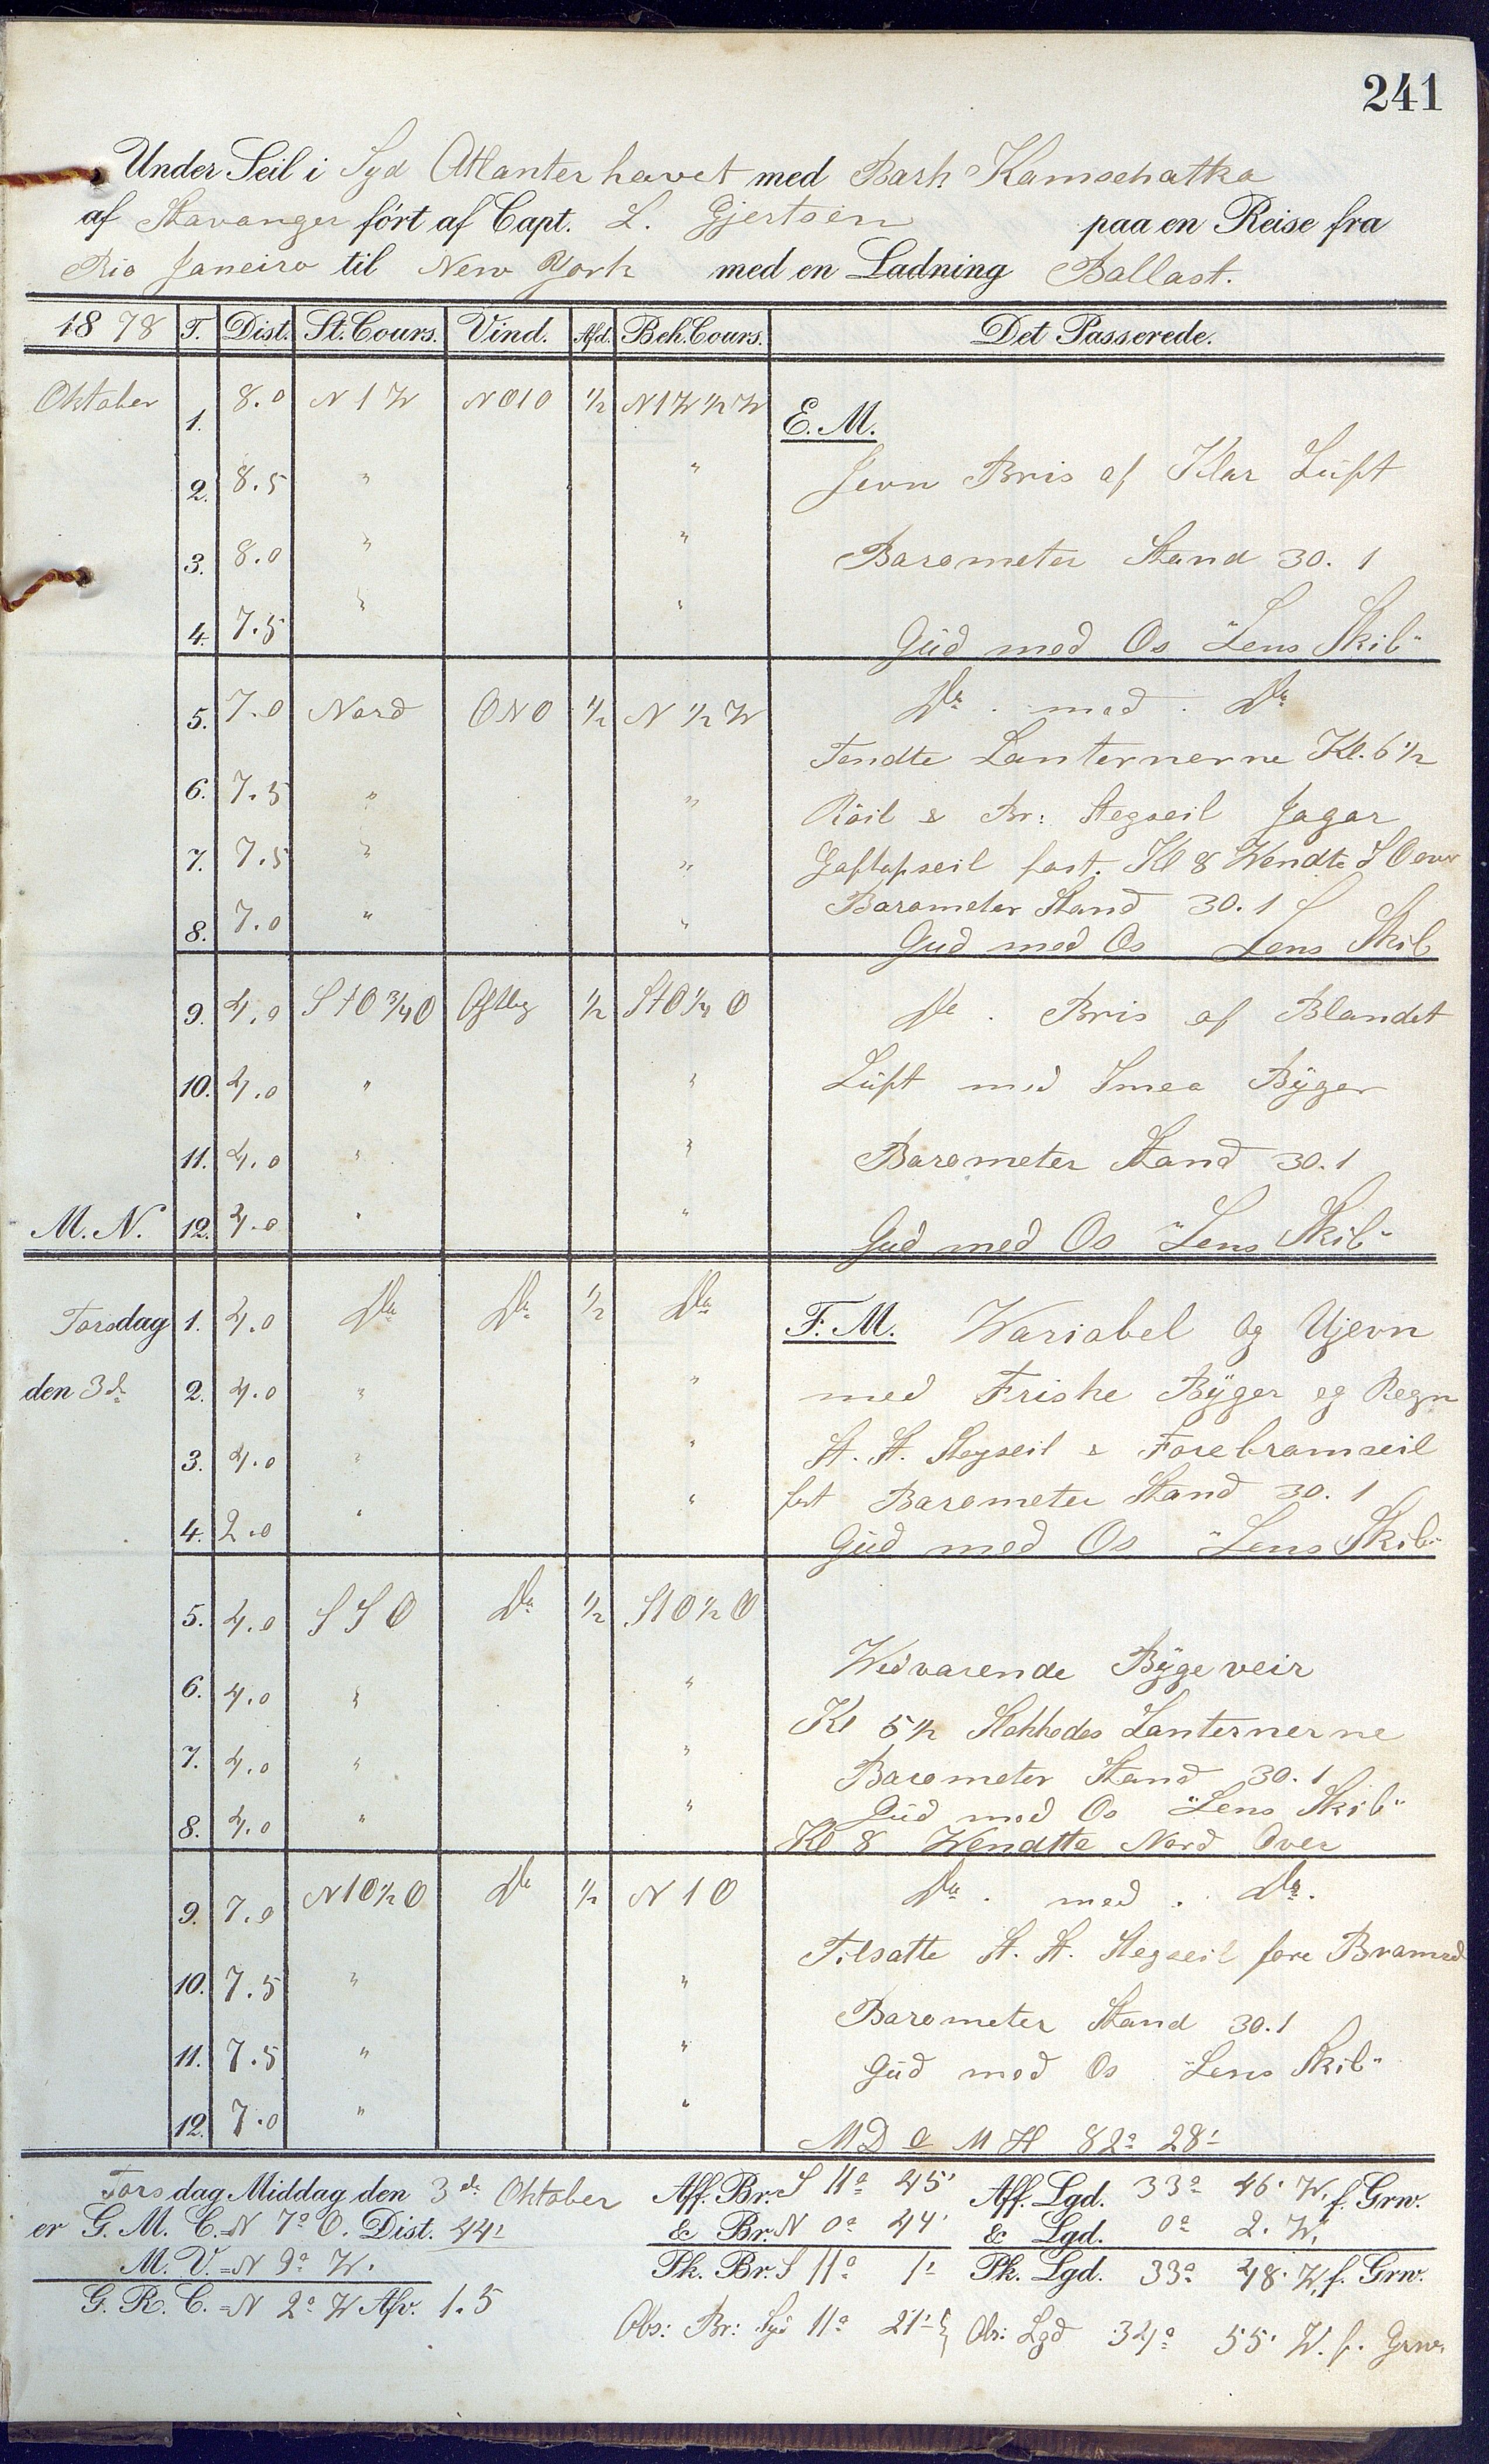 241
Under Seil i Syd Atlanterhavet med Bark Kamschatka
af Stavanger fört af Capt. L. Gjertsen paa en Reise fra
Rio Janeiro til New York med en Ladning Ballast.
18 78 T. Dist. St. Cours. Vind. Afd. Beh. Cours. Det Passerede.
Oktober 1. 8.0 N 1 W NO 1 O 1/2 N 1 W 1/2 W E. M.
2. 8.5 " " Jevn Bris af Klar Luft
3. 8.0 " " Barometer Stand 30.1
4. 7.5 " " Gud med Os "Lens Skib"
5. 7.0 Nord ONO 1/2 N 1/2 W Do. med. Do.
Tendte Lanternerne Kl. 6 1/2
6. 7.5 " " Röil & Br: Stegseil Jagar
7. 7.5 " " Gaftopseil fast. Kl 8 Wendte S Over
Barometer Stand 30.1
8. 7.0 " " Gud med Os Lens Skib
9. 4.0 S t O 3/4 O Østlig 1/2 S t O 1/4 O Do. Bris af Blandet
10. 4.0 " " Luft med Smea Byger
11. 4.0 " " Barometer Stand 30.1
M. N. 12. 4.0 " " Gud med Os "Lens Skib"
Torsdag 1. 4.0 Do. Do. 1/2 Do. F. M. Wariabel og Ujevn
den 3de 2. 4.0 " " med Friske Byger og Regn
3. 4.0 " " St. St. Stegseil & Forebramseil
fast Barometer Stand 30.1
4. 2.0 " " Gud med Os "Lens Skib"
5. 4.0 S S O Do. 1/2 S t O 1/2 O
Wedvarende Bygeveir
6. 4.0 " "
Kl 5 1/2 Slukkedes Lanternerne
7. 4.0 " " Barometer Stand 30.1
Gud med Os "Lens Skib"
8. 4.0 " " Kl 8 Wendtte Nord Over
9. 7.0 N 1 O 1/2 O Do 1/2 N 1 O Do. med. Do.
Tilsatte St. St. Stegseil fore Bramsel
10. 7.5 " "
Barometer Stand 30.1
11. 7.5 " " Gud med Os "Lens Skib"
12. 7.0 " " M D a M H 82° 28'
Torsdag Middag den 3de Oktober Aff. Br. S 11° 45' Aff. Lgd. 33° 46' W. f. Grw.
er G. M. C. = N 7° O. Dist. 44' & Br. N 0° 44' & Lgd. 0° 2' W.
M. V. = N 9° W. Pk. Br. S 11° 1' Pk. Lgd. 33° 48' W. f. Grw.
G. R. C. = N 2° W Afv. 1.5
Obs: Br: Syd 11° 21' Obs: Lgd 34° 55' W. f. Grw.